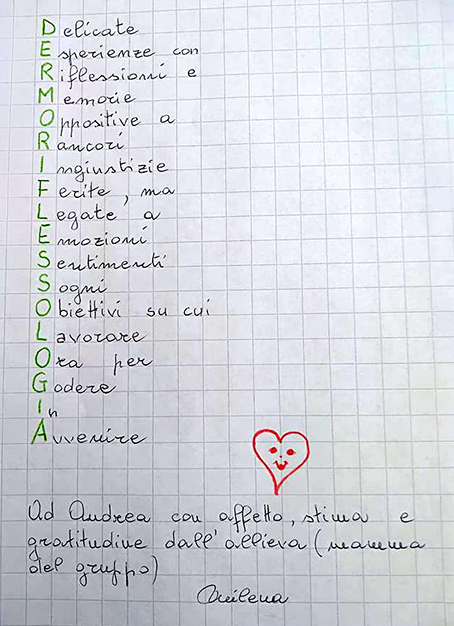 Delicate
Esperienze con
Riflessioni e
Memorie
Oppositive a
Rancori
Ingiustizie
Ferite, ma
Legate a
Emozioni
Sentimenti
Sogni
Obiettivi su cui
Lavorare
Ora per
Godere
In
Avvenire
Ad Andrea con affetto, stima e
gratitudine dall'allieva (mamma
del gruppo)